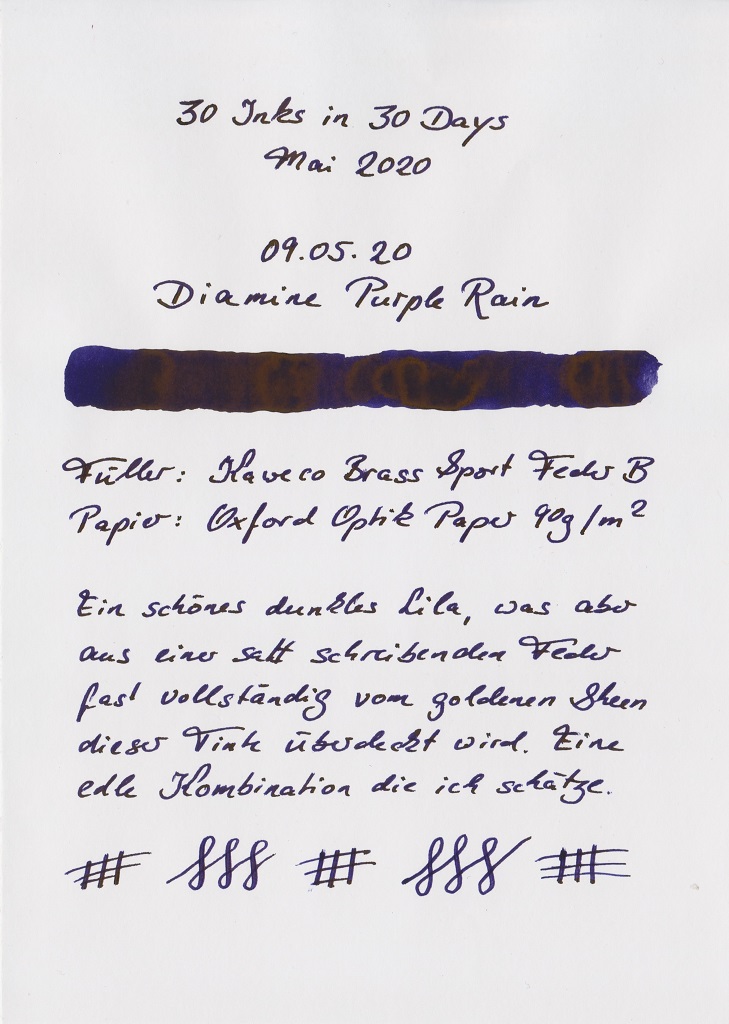 30 Inks in 30 Days
Mai 2020
09.05.20
Diamine Purple Rain
Füller: Kaweco Brass Sport Feder B
Papier: Oxford Optik Paper 90g/m²
Ein schönes dunkles Lila, was aber
aus einer satt schreibenden Feder
fast vollständig vom goldenen Sheen
dieser Tinte überdeckt wird. Eine
edle Kombination die ich schätze.